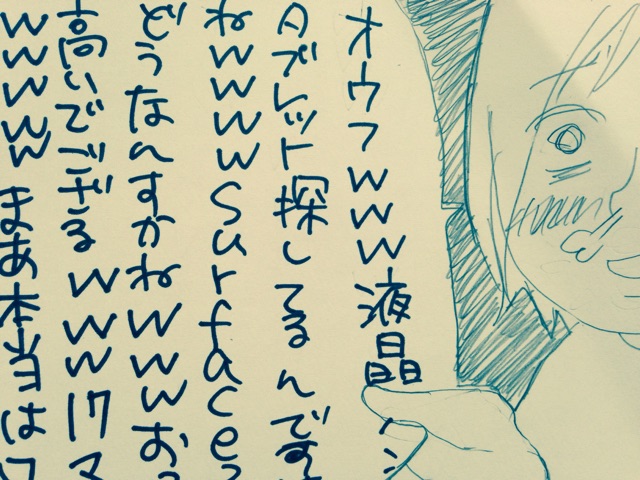 オウフwww液晶
タブレット探してるんです
ねwwwwsurface
どうなんすかねwwwお
高いでござるwww17マ
wwwwwまあ本当はワ